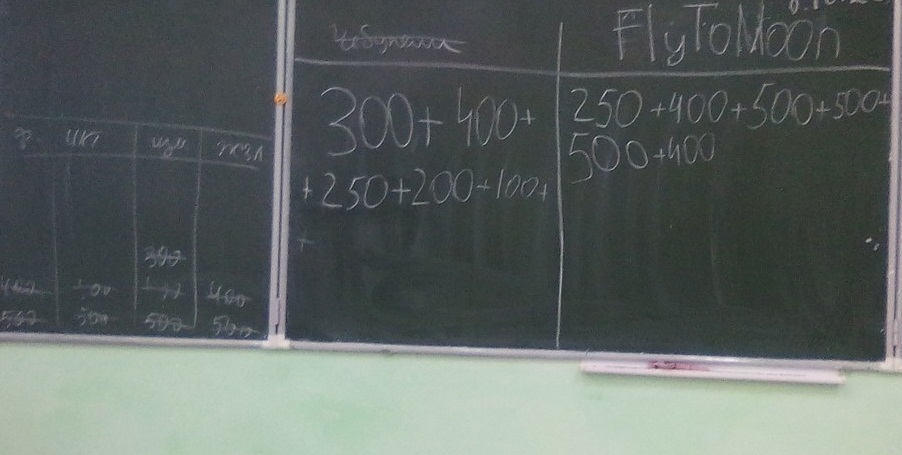 FlyToMoon
300+400+
+250+200+100+
+
250+400+500+500+
500+400
икт
300
400 400
500 300 500 500